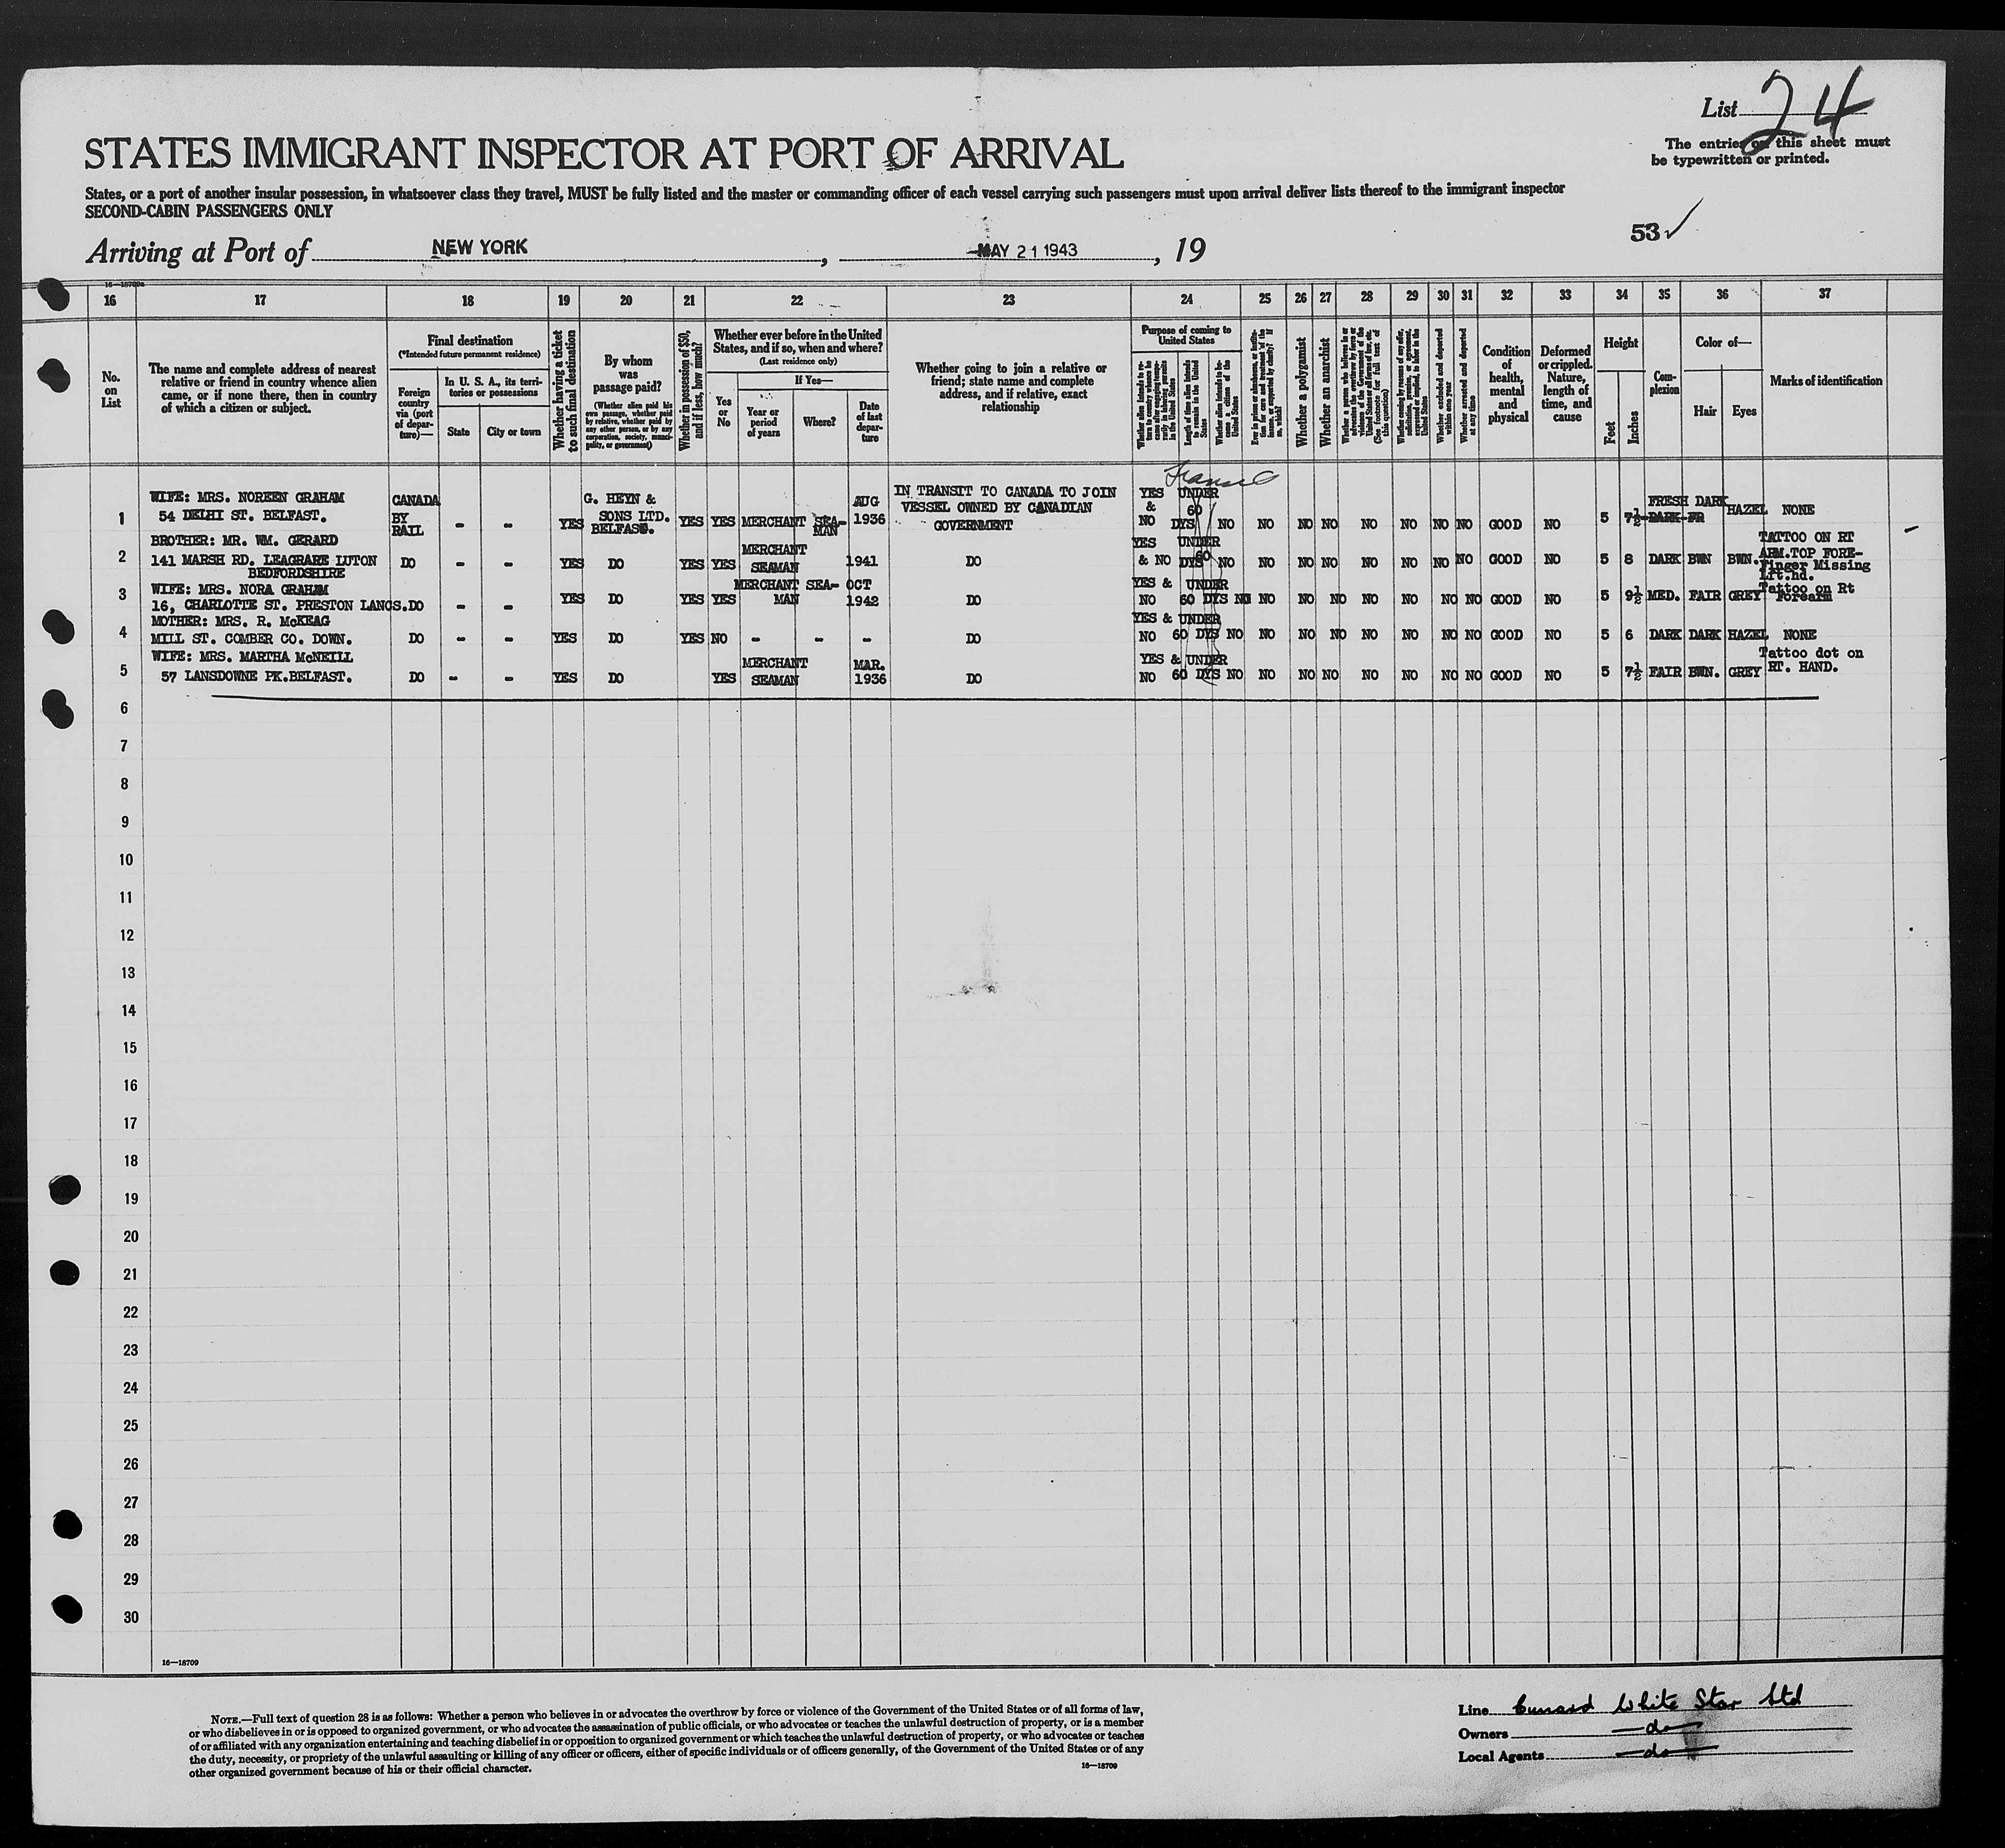 List 24
The entries on this sheet must
be typewritten or printed.
STATES IMMIGRANT INSPECTOR AT PORT OF ARRIVAL
States, or a port of another insular possession, in whatsoever class they travel, MUST be fully listed and the master or commanding officer of each vessel carrying such passengers must upon arrival deliver lists thereof to the immigrant inspector
SECOND-CABIN PASSENGERS ONLY
53 ✓
Arriving at Port of NEW YORK, MAY 21 1943, 19
16 17 18 19 20 21 22 23 24 25 26 27 28 29 30 31 32 33 34 35 36 37
No. on List
The name and complete address of nearest relative or friend in country whence alien came, or if none there, then in country of which a citizen or subject.
Final destination
(*Intended future permanent residence)
Foreign country via (port of departure)—
In U. S. A., its territories or possessions
State
City or town
Whether having a ticket to such final destination
By whom was passage paid?
(Whether alien paid his own passage, whether paid by relative, whether paid by any other person, or by any corporation, society, municipality, or government)
Whether in possession of $50, and if less, how much?
Whether ever before in the United States, and if so, when and where?
(Last residence only)
Yes or No
If Yes—
Year or period of years
Where?
Date of last departure
Whether going to join a relative or friend; state name and complete address, and if relative, exact relationship
Purpose of coming to United States
Length of time alien intends to remain in the United States
Whether alien intends to become a citizen of the United States
Whether a polygamist
Whether an anarchist
Whether excluded and deported within one year
Whether arrested and deported at any time
Condition of health, mental and physical
Deformed or crippled. Nature, length of time, and cause
Height
Feet
Inches
Complexion
Color of—
Hair
Eyes
Marks of identification
Transit
1 WIFE: MRS. NOREEN GRAHAM
54 DELHI ST. BELFAST. CANADA BY RAIL - - YES G. HEYN & SONS LTD. BELFAST. YES YES MERCHANT SEAMAN AUG 1936 IN TRANSIT TO CANADA TO JOIN VESSEL OWNED BY CANADIAN GOVERNMENT YES & NO UNDER 60 DYS NO NO NO NO NO NO NO NO GOOD NO 5 7½ FRESH DARK DARK FR HAZEL NONE
2 BROTHER: MR. WM. GERARD
141 MARSH RD. LEAGRARE LUTON
BEDFORDSHIRE DO - - YES DO YES YES MERCHANT SEAMAN 1941 DO YES & NO UNDER 60 DYS NO NO NO NO NO NO NO NO GOOD NO 5 8 DARK BWN BWN. TATTOO ON RT ARM.TOP FORE-Finger Missing Lft.hd.
3 WIFE: MRS. NORA GRAHAM
16, CHARLOTTE ST. PRESTON LANCS. DO - - YES DO YES YES MERCHANT SEAMAN OCT 1942 DO YES & NO UNDER 60 DYS NO NO NO NO NO NO NO NO GOOD NO 5 9½ MED. FAIR GREY Tattoo on Rt Forearm
4 MOTHER: MRS. R. McKEAG
MILL ST. COMBER CO. DOWN. DO - - YES DO YES NO - - - DO YES & NO UNDER 60 DYS NO NO NO NO NO NO NO NO GOOD NO 5 6 DARK DARK HAZEL NONE
5 WIFE: MRS. MARTHA McNEILL
57 LANSDOWNE PK.BELFAST. DO - - YES DO YES MERCHANT SEAMAN MAR. 1936 DO YES & NO UNDER 60 DYS NO NO NO NO NO NO NO NO GOOD NO 5 7½ FAIR BWN. GREY Tattoo dot on RT. HAND.
6
7
8
9
10
11
12
13
14
15
16
17
18
19
20
21
22
23
24
25
26
27
28
29
30
16—18709
NOTE.—Full text of question 28 is as follows: Whether a person who believes in or advocates the overthrow by force or violence of the Government of the United States or of all forms of law,
or who disbelieves in or is opposed to organized government, or who advocates the assassination of public officials, or who advocates or teaches the unlawful destruction of property, or is a member
of or affiliated with any organization entertaining and teaching disbelief in or opposition to organized government or which teaches the unlawful destruction of property, or who advocates or teaches
the duty, necessity, or propriety of the unlawful assaulting or killing of any officer or officers, either of specific individuals or of officers generally, of the Government of the United States or of any
other organized government because of his or their official character.
16—18709
Line Cunard White Star Ltd
Owners —do—
Local Agents —do—